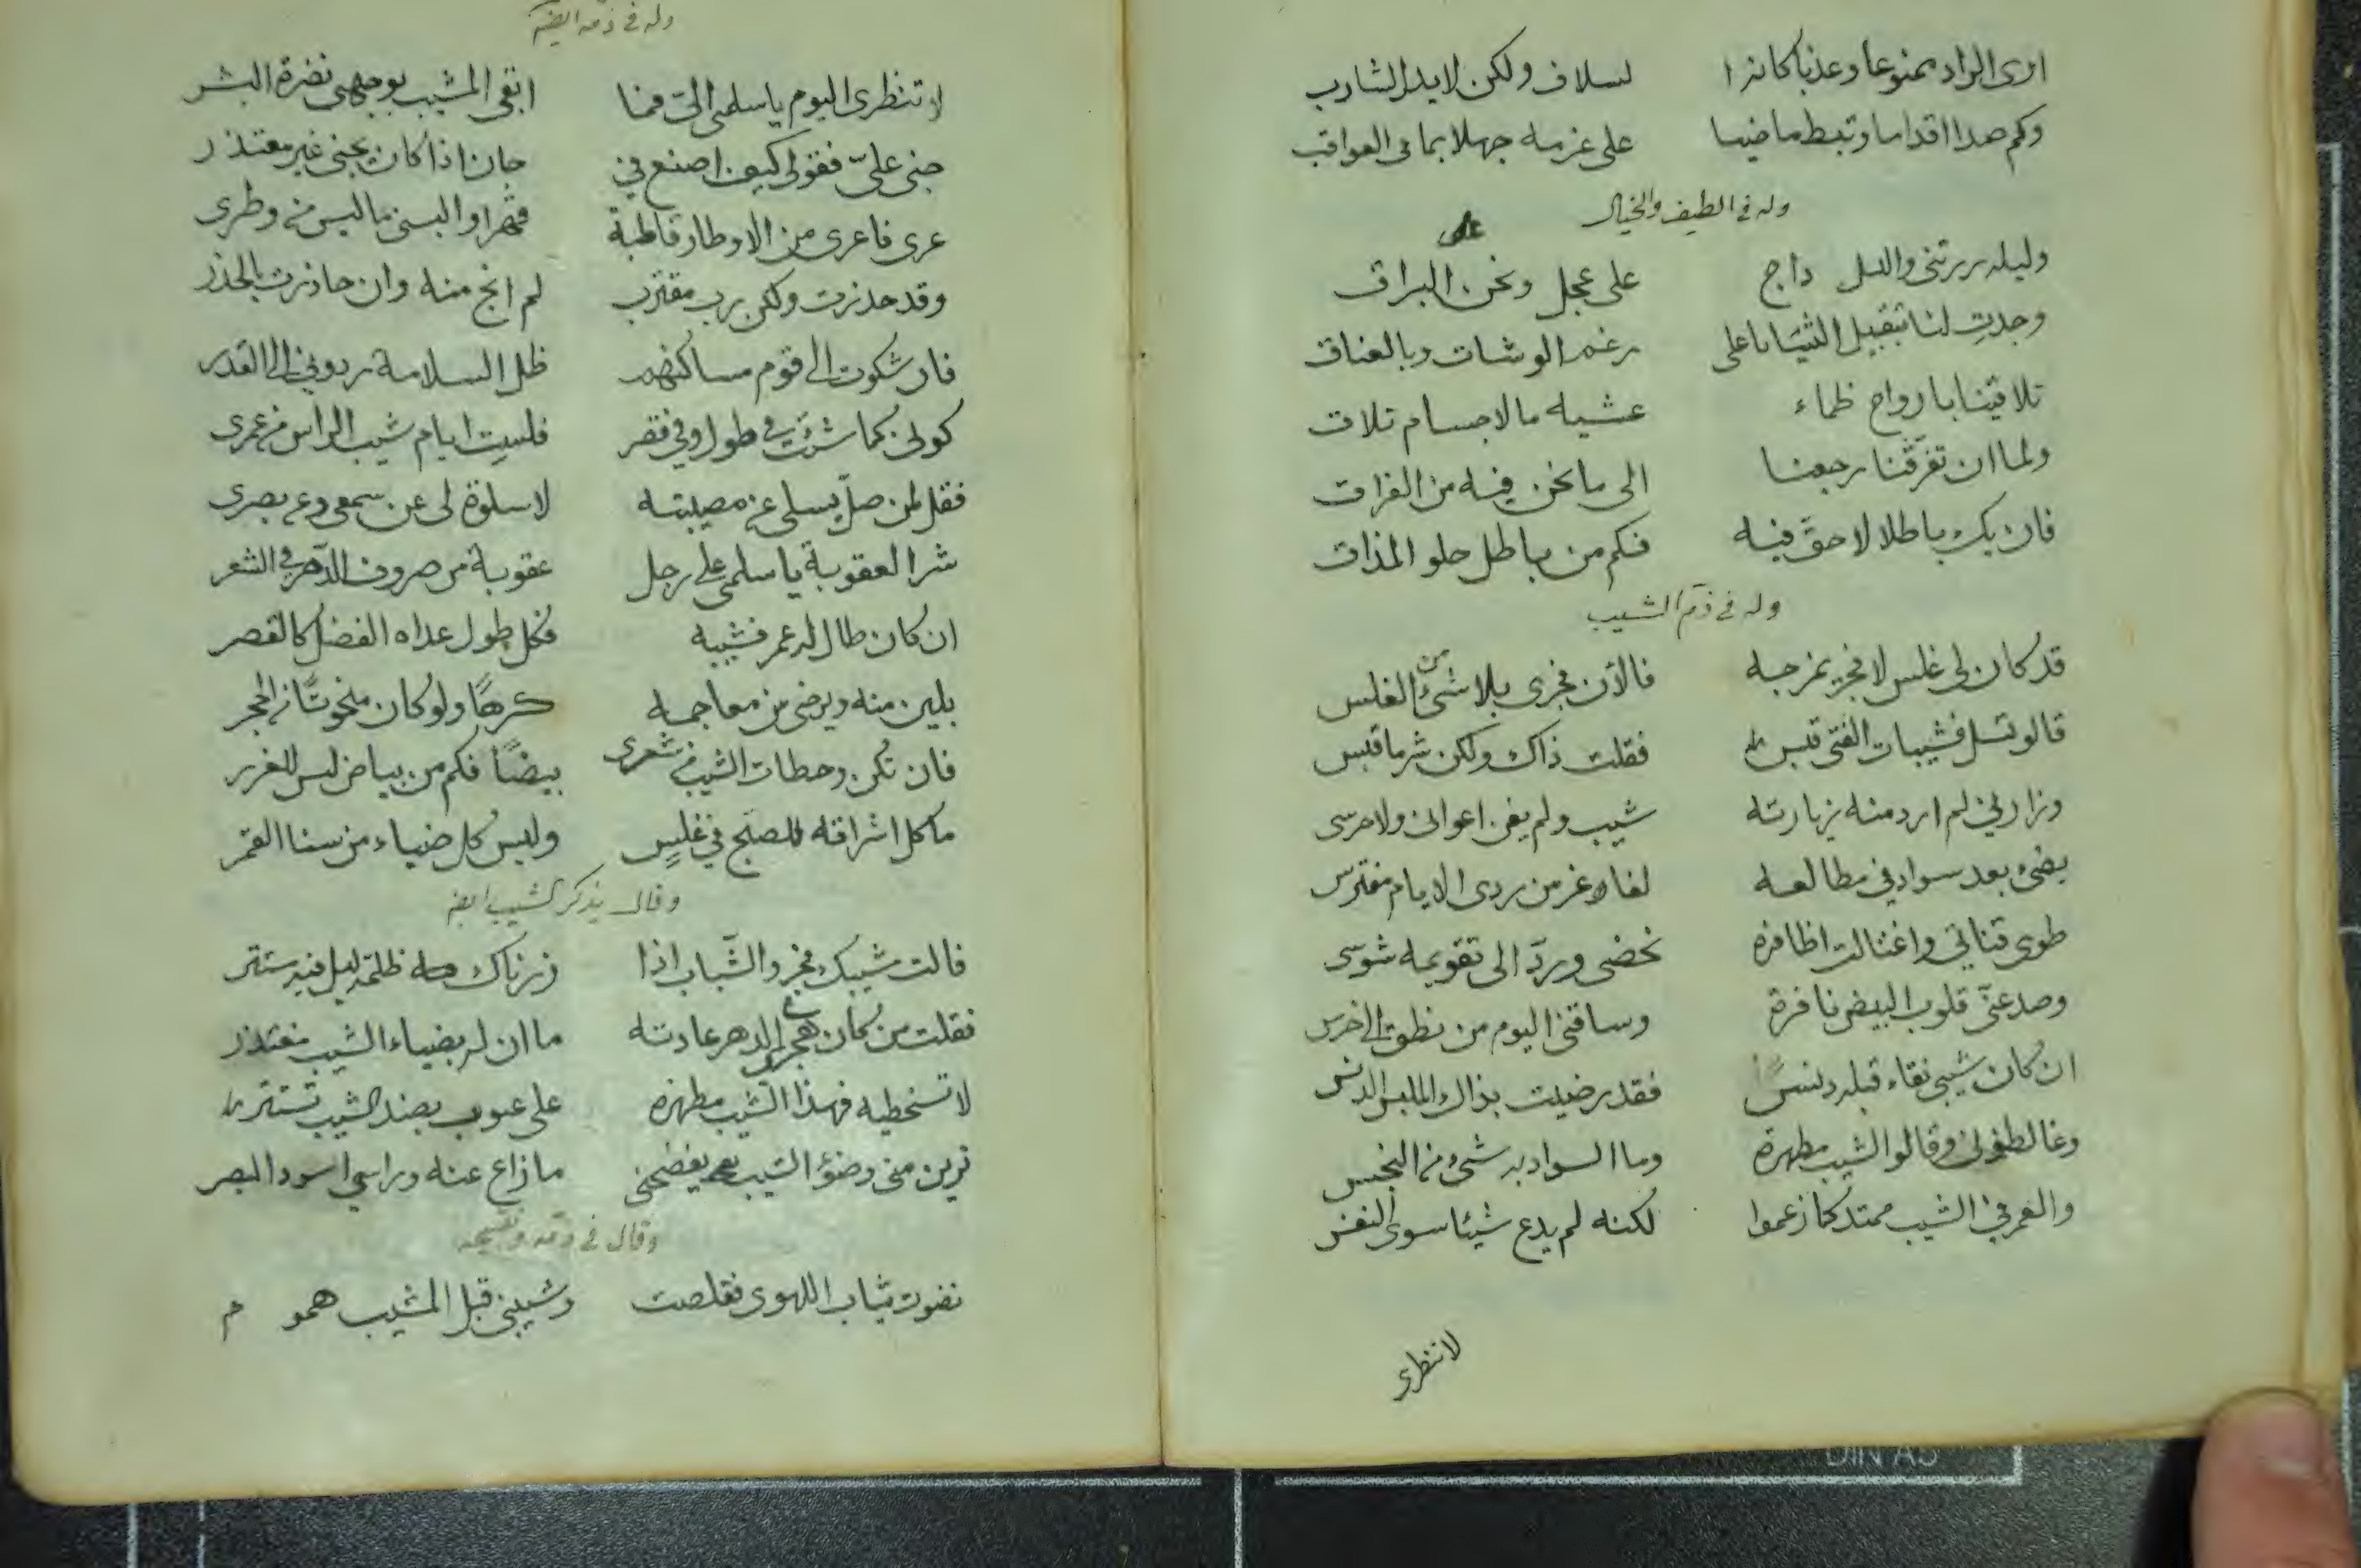 ارى الراد ممنوعا وعذبا كانزا لسلاف ولكن لا يدل لشارب
وكم صدا اقداما وتبط ماضيا على عزمه جهلا بما فى العواقب
وله فى الطيف والخيال
وليله زرتنى والليل داج على عجل ونحن البراق
وجدتِ لنا بتقبيل الثنيايا على رغم الوشات وبالعناق
تلاقينا بارواح ظماء عشيه ما لاجسام تلاق
ولما ان تفرّقنا رجعنا الى ما نحن فيه من الفراق
فان يك باطلا لا حقّ فيه فكم من باطل حلو المذاق
وله فى ذم الشيب
قد كان لى غلس لا فجر يمزجه فالأن فجرى بلا شئ من الغلس
قالو تسل فشيبات الفتى قبس فقلت ذاك ولكن شر ما قبس
وزارنى لم ارد منه زيارته شيب ولم يغن اعوانى ولا حرسى
يضئ بعد سواد فى مطالعه لفاه غر من ردى الايام مفترس
طوى قناتى واغتالت اظافره نحضى وردّ الى تقويمه شوسى
وصد عنّى قلوب البيض نافرة وساقنى اليوم من نطق الى خرس
ان كان شيبى نقاء قبله دنسًا فقد رضيت بذاك الملبس الدنس
وغالطونى وقالوا الشيب مطهرة وما السواد به شئ من النجس
والعمر فى الشيب ممتد كما زعموا لكنه لم يدع شيئا سوى النفس
لا تنظرى
وله فى ذمه ايضا
لا تنظرى اليوم يا سلمى الىّ فما ابقى المشيب بوجهى نضرة البشر
جنى علىّ فقولى كيف اصنع فى جان اذا كان يجنى غير معتذر
عرى فاعرى من الاوطار قاطبة قهرا والبسنى ما ليس من وطرى
وقد حذرت ولكن رب مقترب لم انج منه وان حاذرت بالحذر
فان شكوت الى قوم مساكنهم ظل السلامة ردونى الى القدر
كونى كما شئت فى طول وفى قصر فلستِ ايام شيب الراس من عمرى
فقل لمن ضلّ يسلى عن مصيبته لا سلوة لى عن سمعى وعن بصرى
شر العقوبة يا سلمى على رجل عقوبة من صروف الدّهر فى الشعر
ان كان طال له عمر فشيبه فكل طول عداه الفضل كالقصر
يلين منه ويرضى من معاجمه كرهًا ولو كان منحوتًا من الحجر
فان تكن وخطات الشيب فى شعرى بيضًا فكم من بياض ليس للغرر
ما كل اشراقه للصبح فى غلسٍ وليس كل ضياء من سنا القمر
وقال يذكر الشيب ايضا
قالت مشيبك فجر والشّباب اذا زرناك ظلمة ليل فيه مستتر
فقلت من كان هجر الدهر عادته ما ان له بضياء الشيب معتذر
لا تسخطيه فهذا الشيب مطهره على عيوب بضد الشيب تستتر
ترين منى وضوء الشيب يفضحنى ما زاع عنه وراسى اسود البصر
وقال فى ذمه
نضوت ثياب اللهوى فقلصت وشيبنى قبل المشيب همو م